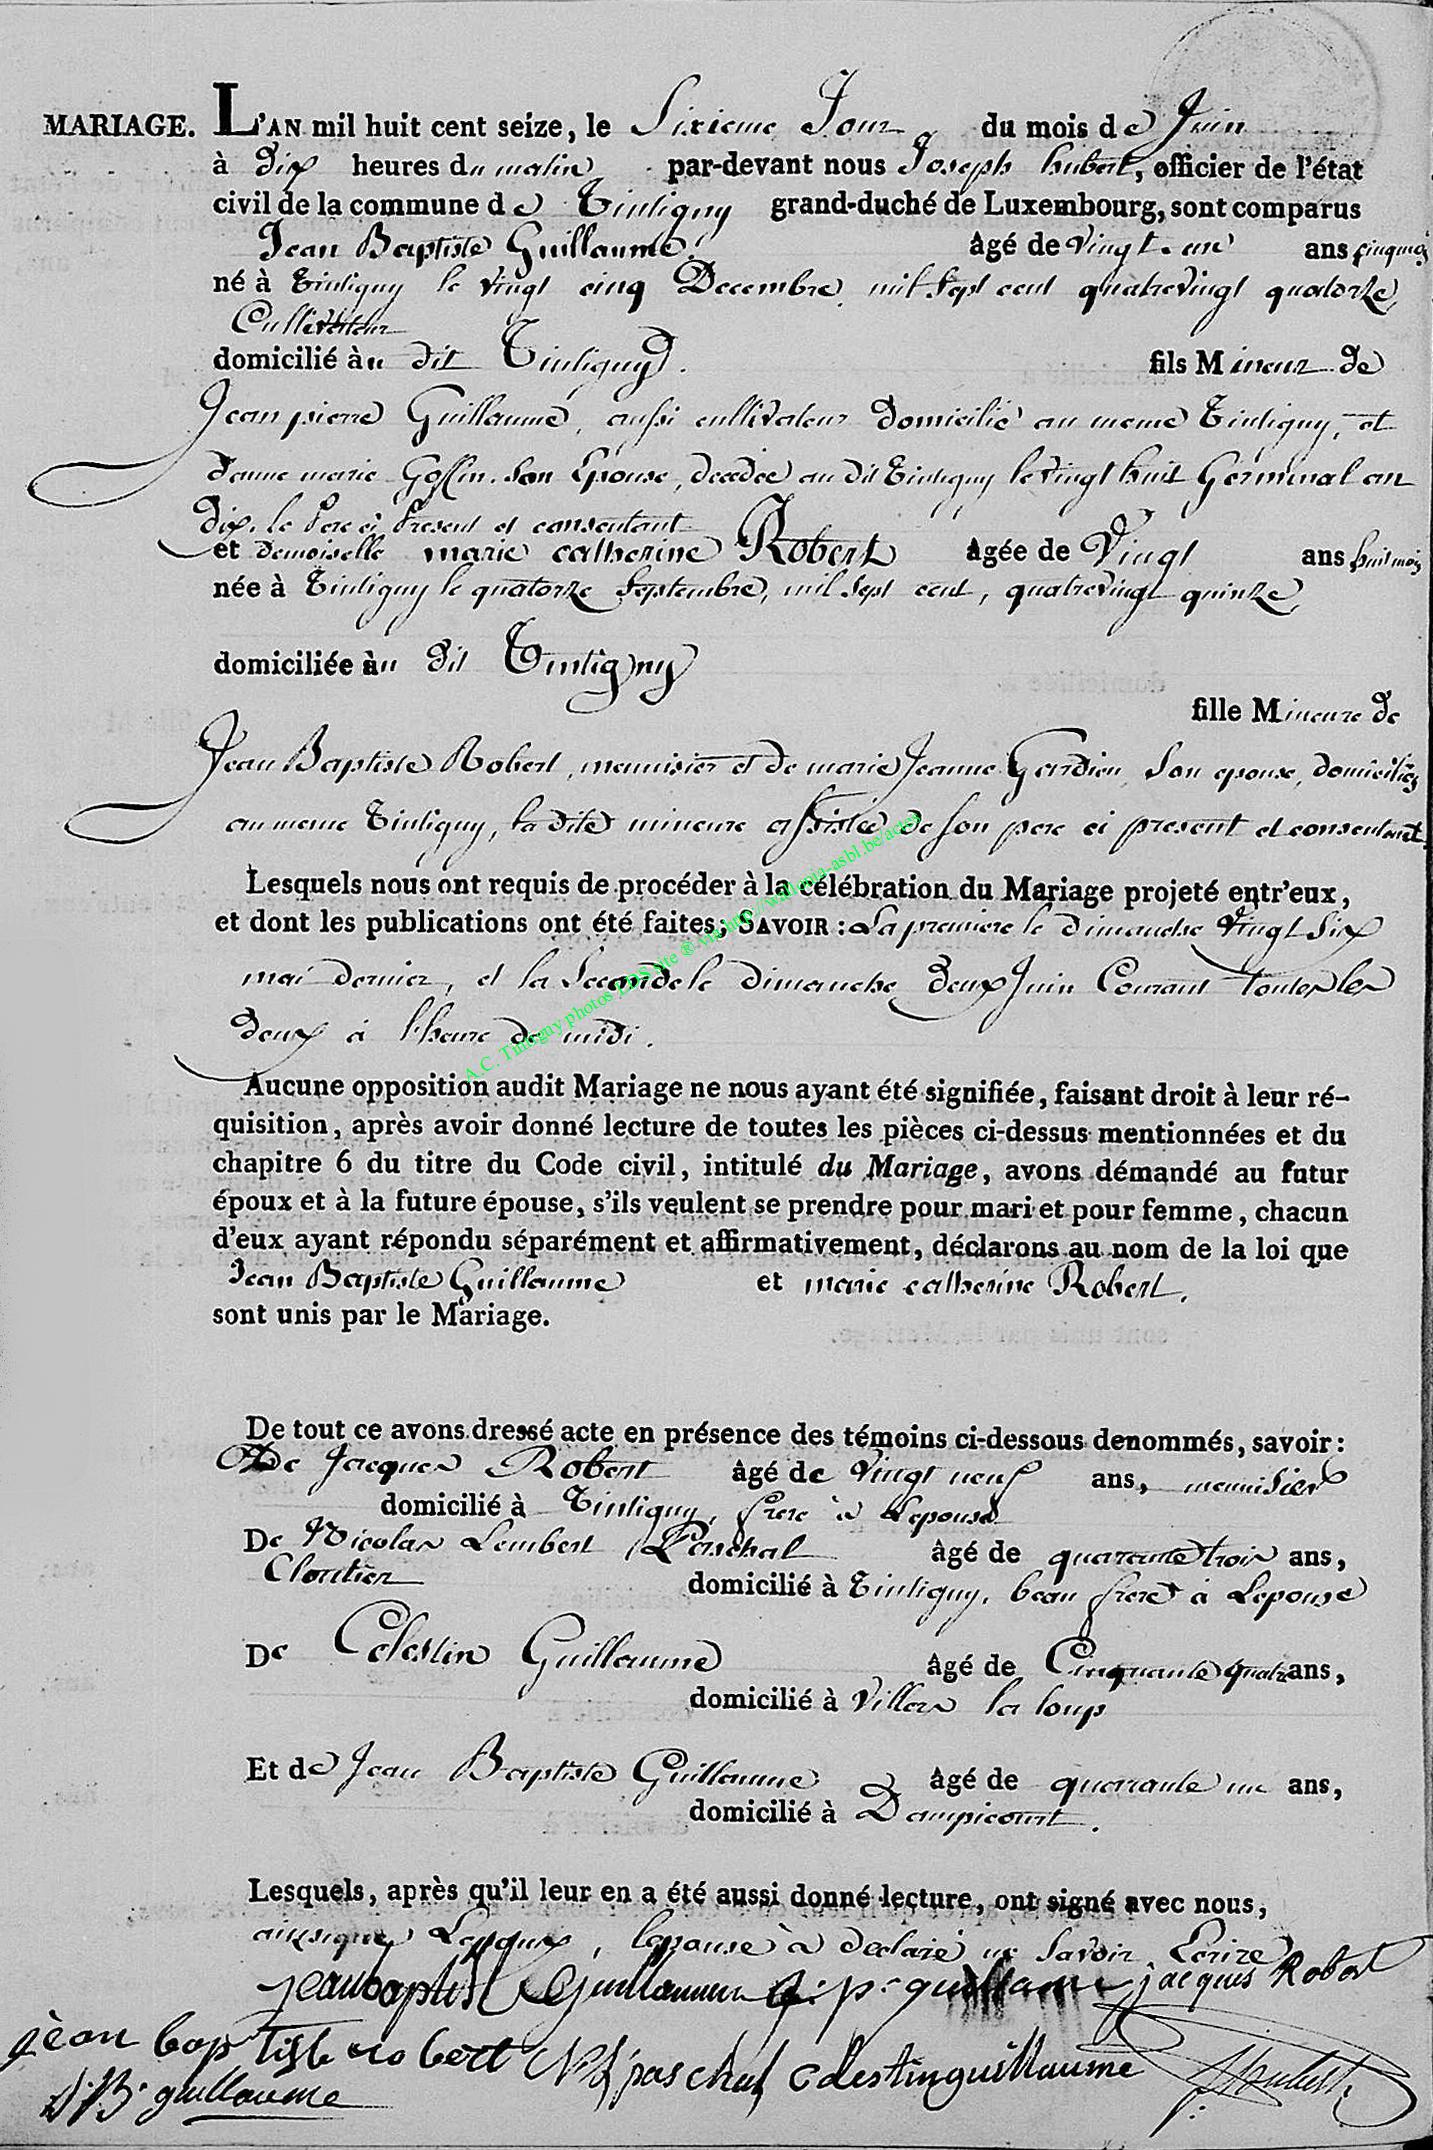 MARIAGE. L'AN mil huit cent seize, le Sixieme Jour du mois de Juin
à Dix heures du matin par-devant nous Joseph hubert, officier de l'état
civil de la commune de Tintigny grand-duché de Luxembourg, sont comparus
Jean Baptiste Guillaume, âgé de vingt un ans cinq mois
né à Tintigny le vingt cinq Decembre mil sept cent quatrevingt quatorze,
Cultivateur
domicilié àu dit Tintigny. fils Mineur de
Jean pierre Guillaume, aussi cultivateur domicilié au meme Tintigny, et
d'anne marie Goffin son Epouse, decedée au dit Tintigny le vingt huit Germinal an
dix, le Pere ci Present et consentant
et Demoiselle marie catherine Robert âgée de Vingt ans huit mois
née à Tintigny le quatorze Septembre, mil sept cent, quatrevingt quinze,
domiciliée àu dit Tintigny
fille Mineure de
Jean Baptiste Robert, menuisier et de marie Jeanne Gerdien, son epouse, domiciliés
au meme Tintigny, la dite mineure assistée de son pere ci present et consentant.
Lesquels nous ont requis de procéder à la célébration du Mariage projeté entr'eux,
et dont les publications ont été faites; SAVOIR : La premiere le Dimanche vingt Six
mai dernier, et la Seconde le dimanche deux Juin Courant toutes les
deux à l'heure de midi.
Aucune opposition audit Mariage ne nous ayant été signifiée, faisant droit à leur ré-
quisition, après avoir donné lecture de toutes les pièces ci-dessus mentionnées et du
chapitre 6 du titre du Code civil, intitulé du Mariage, avons démandé au futur
époux et à la future épouse, s'ils veulent se prendre pour mari et pour femme, chacun
d'eux ayant répondu séparément et affirmativement, déclarons au nom de la loi que
Jean Baptiste Guillaume et marie catherine Robert.
sont unis par le Mariage.
De tout ce avons dressé acte en présence des témoins ci-dessous denommés, savoir :
De Jacques Robert âgé de vingt neuf ans, menuisier
domicilié à Tintigny, frere à Lepouse
De Nicolas Lambert Paschal âgé de quarante trois ans,
Cloutier domicilié à Tintigny, beau frere à Lepouse
De Celestin Guillaume âgé de Cinquante quatre ans,
domicilié à Villers la loup
Et de Jean Baptiste Guillaume âgé de quarante un ans,
domicilié à Dampicourt.
Lesquels, après qu'il leur en a été aussi donné lecture, ont signé avec nous,
ainsique Lepoux, lepouse à declaré ne Savoir Ecrire
jean baptist Guillaume j:p: guillaume jacques Robert
jèan baptiste robert NL paschal celestin guillaume JHubert
J:B: guillaume
A.C. Tintigny photos LDS site ® via http://wallonia-asbl.be/actes